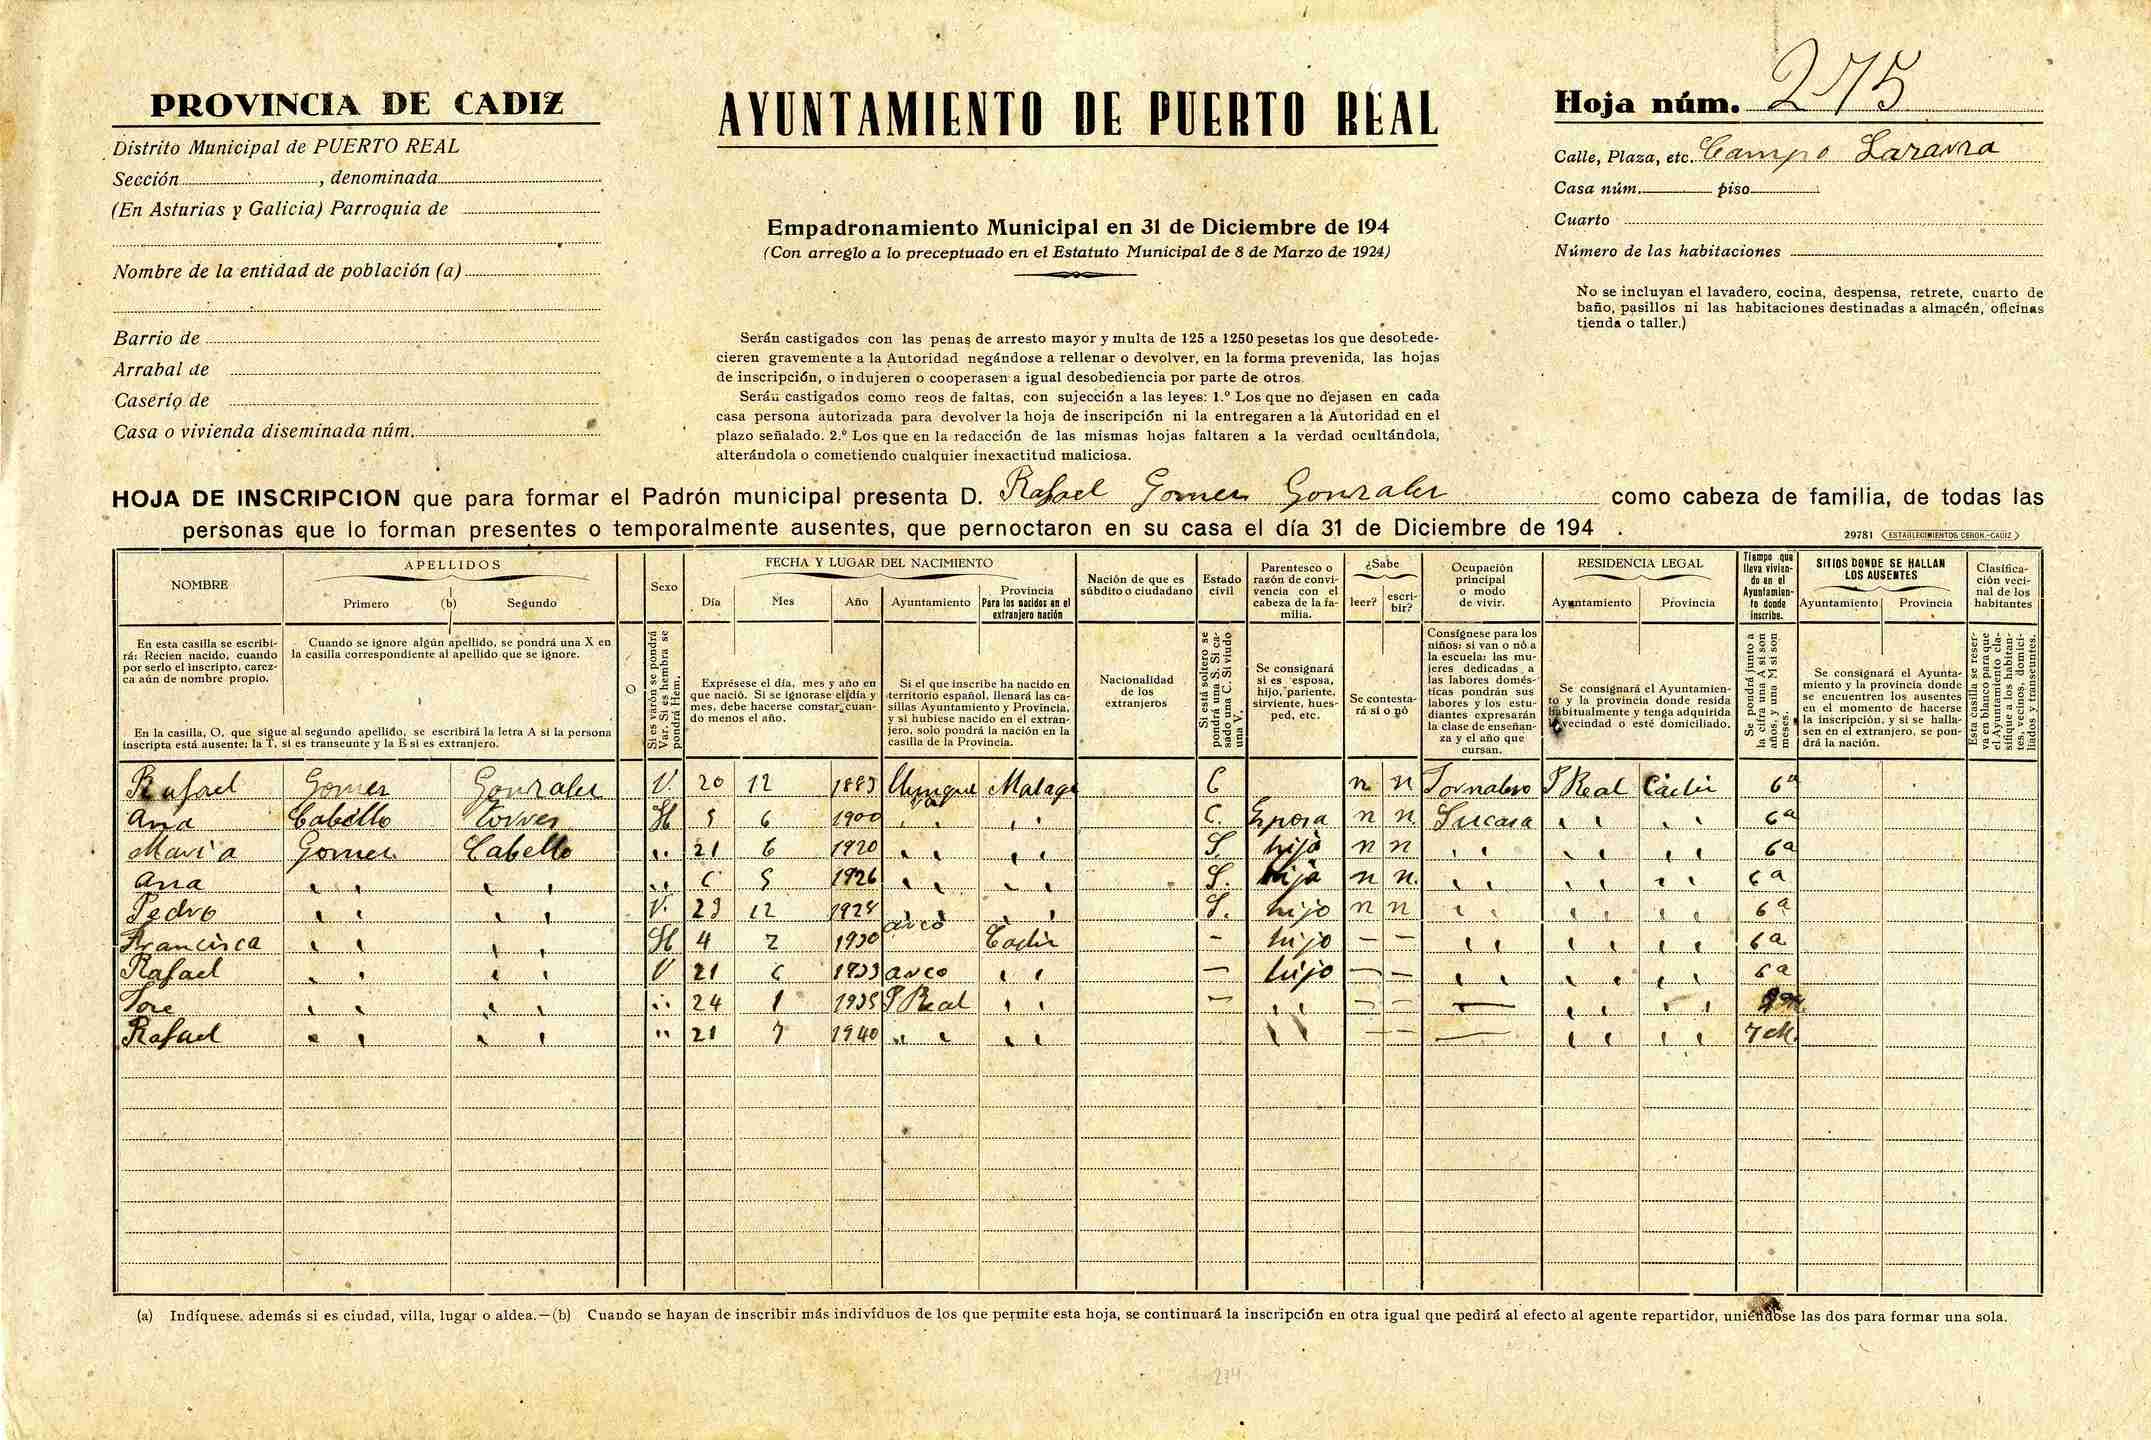 PROVINCIA DE CADIZ
Distrito Municipal de PUERTO REAL
Sección , denominada
(En Asturias y Galicia) Parroquia de
Nombre de la entidad de población (a)
Barrio de
Arrabal de
Caserío de
Casa o vivienda diseminada núm.
AYUNTAMIENTO DE PUERTO REAL
Empadronamiento Municipal en 31 de Diciembre de 194
(Con arreglo a lo preceptuado en el Estatuto Municipal de 8 de Marzo de 1924)
Serán castigados con las penas de arresto mayor y multa de 125 a 1250 pesetas los que desobede-
cieren gravemente a la Autoridad negándose a rellenar o devolver, en la forma prevenida, las hojas
de inscripción, o indujeren o cooperasen a igual desobediencia por parte de otros.
Serán castigados como reos de faltas, con sujección a las leyes: 1.º Los que no dejasen en cada
casa persona autorizada para devolver la hoja de inscripción ni la entregaren a la Autoridad en el
plazo señalado. 2.º Los que en la redacción de las mismas hojas faltaren a la verdad ocultándola,
alterándola o cometiendo cualquier inexactitud maliciosa.
Hoja núm. 275
Calle, Plaza, etc. Campo
Casa núm. piso
Cuarto
Número de las habitaciones
No se incluyan el lavadero, cocina, despensa, retrete, cuarto de
baño, pasillos ni las habitaciones destinadas a almacén, oficinas
tienda o taller.)
HOJA DE INSCRIPCION que para formar el Padrón municipal presenta D. Rafael Gomez Gonzalez como cabeza de familia, de todas las
personas que lo forman presentes o temporalmente ausentes, que pernoctaron en su casa el día 31 de Diciembre de 194 .
29781 ESTABLECIMIENTOS CERON.-CADIZ
NOMBRE
En esta casilla se escribi-
rá: Recien nacido, cuando
por serlo el inscripto, carez-
ca aún de nombre propio.
APELLIDOS
Primero (b) Segundo
Cuando se ignore algún apellido, se pondrá una X en
la casilla correspondiente al apellido que se ignore.
En la casilla, O, que sigue al segundo apellido, se escribirá la letra A si la persona
inscripta está ausente; la T, si es transeunte y la E si es extranjero.
O
Sexo
Si es varón se pondrá
Var. Si es hembra se
pondrá Hem.
FECHA Y LUGAR DEL NACIMIENTO
Día Mes Año Ayuntamiento
Provincia
Para los nacidos en el
extranjero nación
Exprésese el día, mes y año en
que nació. Si se ignorase el día y
mes, debe hacerse constar, cuan-
do menos el año.
Si el que inscribe ha nacido en
territorio español, llenará las ca-
sillas Ayuntamiento y Provincia,
y si hubiese nacido en el extran-
jero, solo pondrá la nación en la
casilla de la Provincia.
Nación de que es
súbdito o ciudadano
Nacionalidad
de los
extranjeros
Estado
civil
Si está soltero se
pondrá una S. Si ca-
sado una C. Si viudo
una V.
Parentesco o
razón de convi-
vencia con el
cabeza de la fa-
milia.
Se consignará
si es esposa,
hijo, pariente,
sirviente, hues-
ped, etc.
¿Sabe
leer? escri-
bir?
Se contesta-
rá si o nó
Ocupación
principal
o modo
de vivir.
Consígnese para los
niños: si van o nó a
la escuela: las mu-
jeres dedicadas a
las labores domés-
ticas pondrán sus
labores y los estu-
diantes expresarán
la clase de enseñan-
za y el año que
cursan.
RESIDENCIA LEGAL
Ayuntamiento Provincia
Se consignará el Ayuntamien-
to y la provincia donde resida
habitualmente y tenga adquirida
vecindad o esté domiciliado.
Tiempo que
lleva vivien-
do en el
Ayuntamien-
to donde
inscribe.
Se pondrá junto a
la cifra una A si son
años, y una M si son
meses.
SITIOS DONDE SE HALLAN
LOS AUSENTES
Ayuntamiento Provincia
Se consignará el Ayunta-
miento y la provincia donde
se encuentren los ausentes
en el momento de hacerse
la inscripción, y si se halla-
sen en el extranjero, se pon-
drá la nación.
Clasifica-
ción veci-
nal de los
habitantes
Esta casilla se reser-
va en blanco para que
el Ayuntamiento cla-
sifique a los habitan-
tes, vecinos, domici-
liados y transeuntes.
Rafael Gomez Gonzalez V. 20 12 1883 Malaga C n n Jornalero P Real Cádiz 6a
Ana Cabello Torres H 5 6 1900 " " C. Esposa n n Sucasa " " 6a
Maria Gomez Cabello " 21 6 1920 " " S. hija n n " " " " 6a
Ana " " " 6 5 1926 " " S. hija n n " " " 6a
Pedro " " V. 23 12 1928 " " S. hijo n n " " " 6a
Francisca " " H 4 2 1930 arco Cadiz - hijo - - " " " 6a
Rafael " " V 21 6 1933 arco " - hijo - - " " " 6a
Jose " " " 24 1 1935 P Real " - " - - - " "
Rafael " " " 21 7 1940 " " " - - - " " 7 M.
(a) Indíquese. además si es ciudad, villa, lugar o aldea.—(b) Cuando se hayan de inscribir más individuos de los que permite esta hoja, se continuará la inscripción en otra igual que pedirá al efecto al agente repartidor, uniéndose las dos para formar una sola.
274